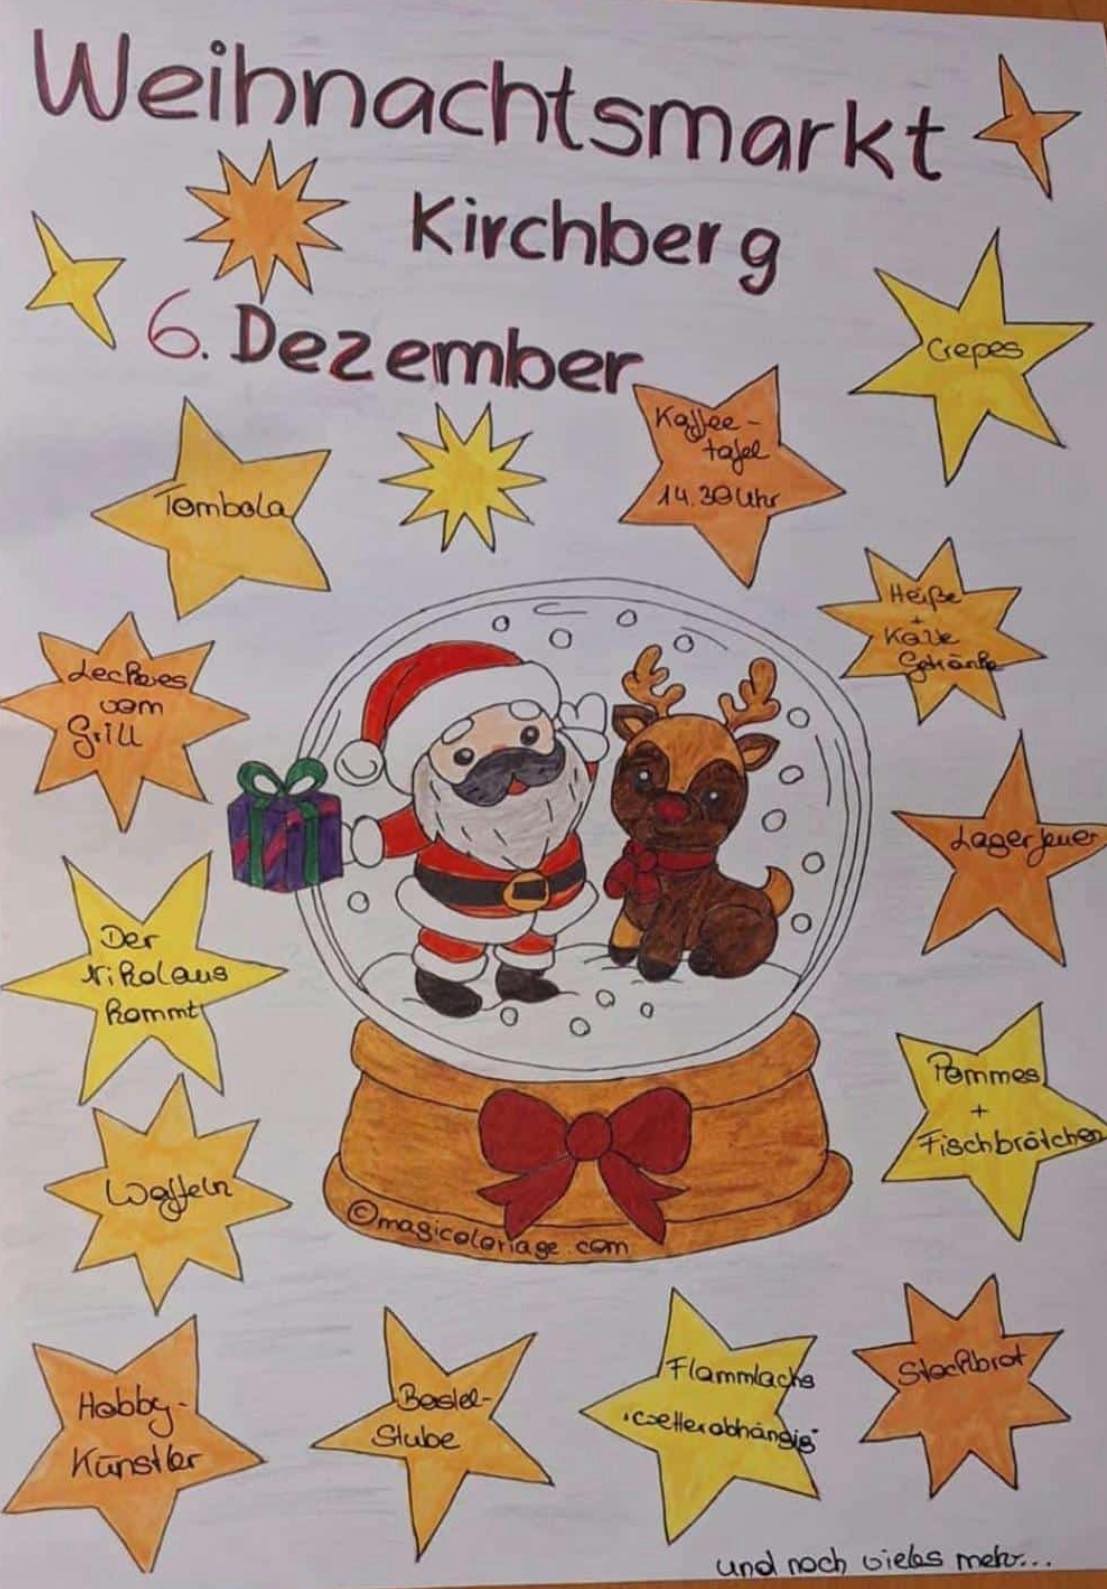 Weihnachtsmarkt
Kirchberg
6. Dezember
Crepes
Kaffee-
tafel
14.30 Uhr
Tombola
Heiße
+
Kalte
Getränke
Leckeres
vom
Grill
Lagerfeuer
Der
Nikolaus
kommt
Pommes
+
Fischbrötchen
Waffeln
©magicoloriage.com
Hobby-
Künstler
Bastel-
Stube
Flammlachs
"wetterabhängig"
Stockbrot
und noch vieles mehr...